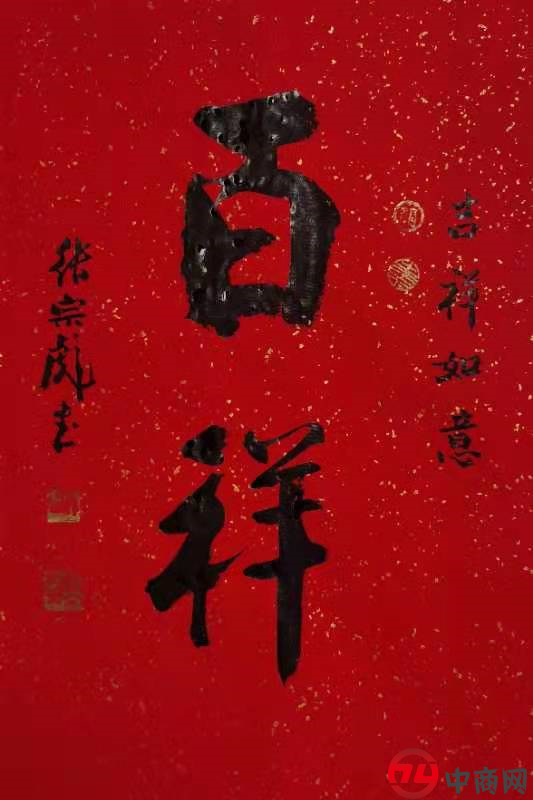 吉祥如意
百祥
张宗彪书
中商网